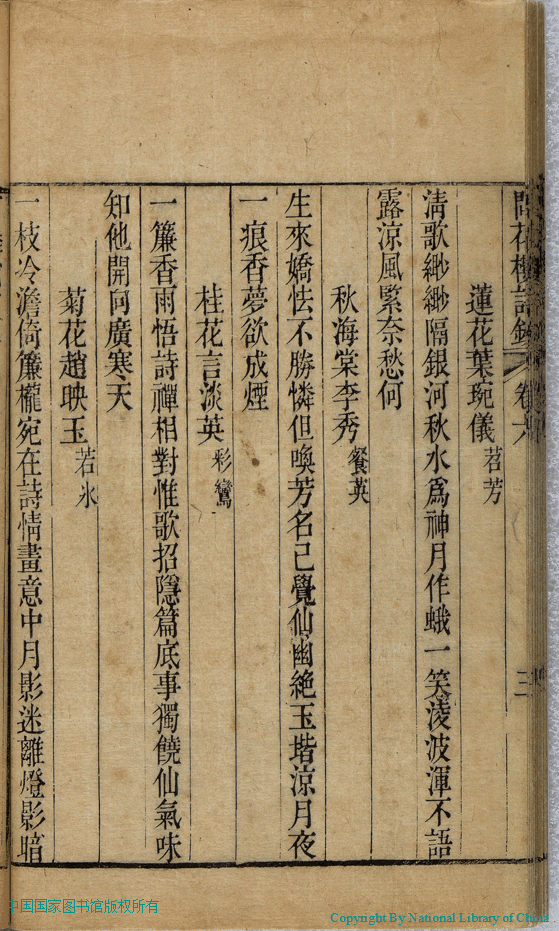 問花樓詩鈔 卷六 三
蓮花葉琬儀 苕芳
清歌緲緲隔銀河秋水爲神月作蛾一笑淩波渾不語
露涼風緊奈愁何
秋海棠李秀 餐英
生來嬌怯不勝憐但喚芳名已覺仙幽絶玉堦涼月夜
一痕香夢欲成煙
桂花言淡英 彩鸞
一簾香雨悟詩禪相對惟歌招隱篇底事獨饒仙氣味
知他開向廣寒天
菊花趙映玉 若氷
一枝冷澹倚簾櫳宛在詩情畫意中月影迷離燈影暗
中国国家图书馆版权所有
Copyright By National Library of China